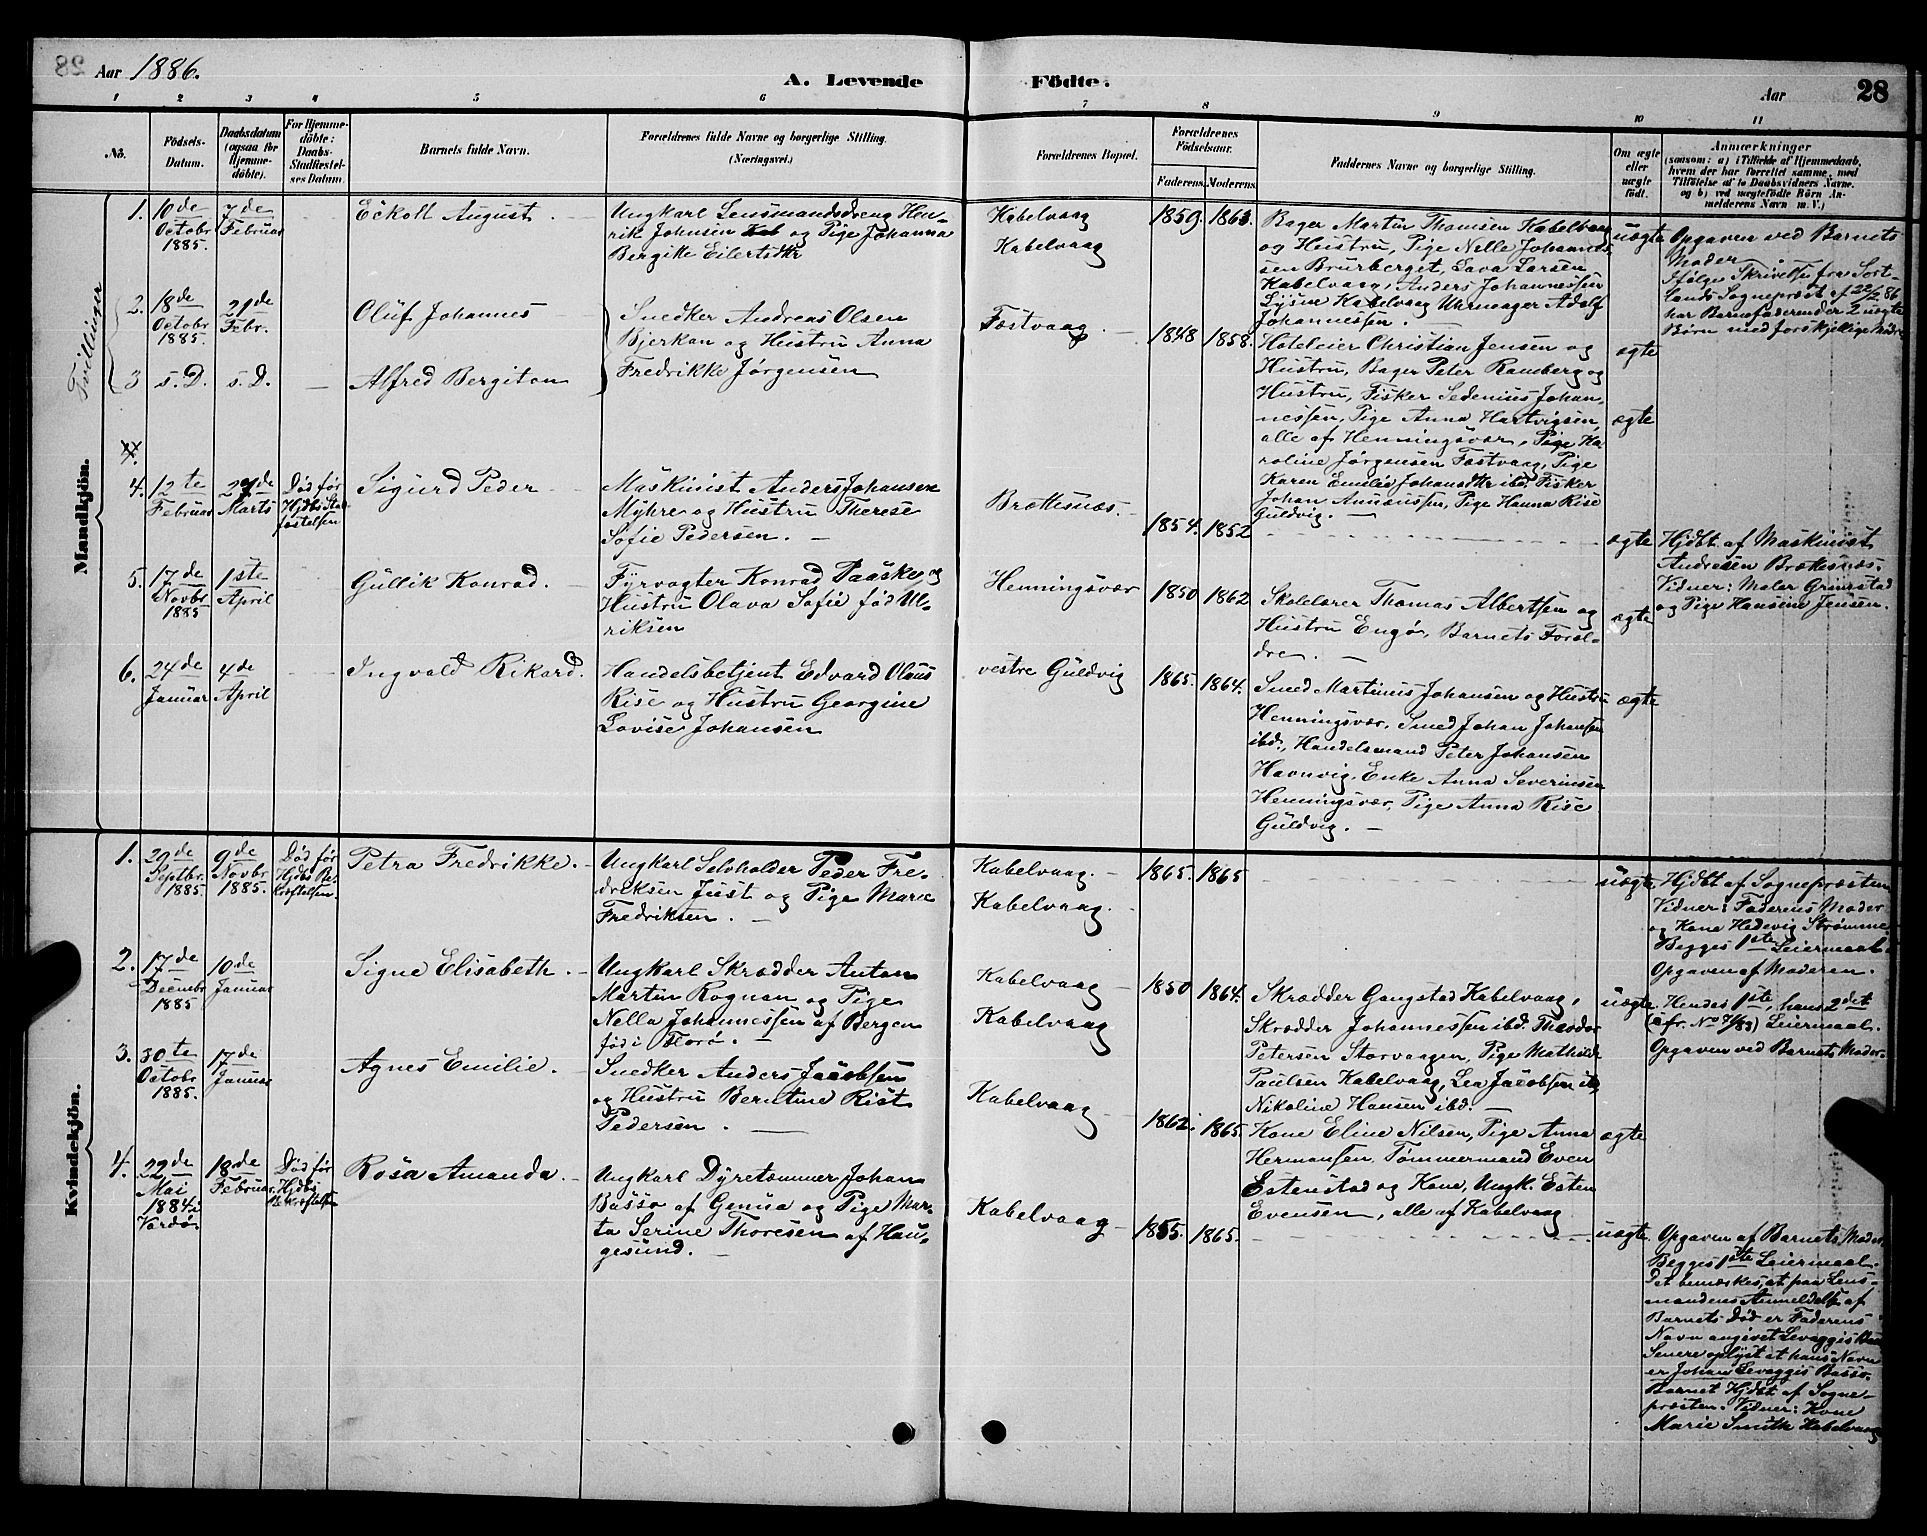 Aar 1886.
A. Levende Födte.
Aar 28
1 2 3 4 5 6 7 8 9 10 11
No.
Födsels-
Datum.
Daabsdatum
(ogsaa for
Hjemme-
döbte).
For Hjemme-
döbte:
Daabs-
Stadfæstel-
ses Datum.
Barnets fulde Navn.
Forældrenes fulde Navne og borgerlige Stilling.
(Næringsvei.)
Forældrenes Bopæl.
Forældrenes
Födselsaar.
Faderens. Moderens.
Faddernes Navne og borgerlige Stilling.
Om ægte
eller
uægte
født.
Anmærkninger
(saasom: a) i Tilfælde af Hjemmedaab,
hvem der har forrettet samme, med
Tilføielse af to Daabsvidners Navne,
og b) ved uægtefödte Börn An-
melderens Navn m. V.)
Mandkjön.
1.
10de
Octobr
1885.
7de
Februar
Eckolt August
Ungkarl Lensmandsdreng Hen-
rik Johnsen og Pige Johanna
Bergitte Eilertsdtr
Kabelvaag
Kabelvaag
1859. 1863.
Bager Martin Thomsen Kabelvaag
og Hustru, Pige Nelle Johannes-
sen Brurberget, Lava Larsen
Kabelvaag, Anders Johannessen
Lysine Kabelvaag Uhrmager Adolf
Johannessen.
uægte
Opgaven ved Barnets
Moder.
Ifølge Skrivelse fra Sort-
lands Sognepræst af 22/2 86
har Barnefaderen der 2 uægte
Børn med forskjellige Mødre
Tvillinger
2.
18de
Octobr
1885.
21de
Febr.
Oluf Johannes
Snedker Andreas Olsen
Bjerkan og Hustru Anna
Fredrikke Jørgensen
Festvaag.
1848 1858.
Hoteleier Christian Jensen og
Hustru, Bager Peter Ramberg og
Hustru, Fisker Sedenius Johan-
nessen, Pige Anna Hartvigsen,
alle af Henningsvær, Pige Ka-
roline Jørgensen Festvaag, Pige
Karen Emilie Johansdtr ibd, Fisker
Johan Ananiassen, Pige Hanna Rise
Guldvig.
ægte
3
s. D.
s. D.
Alfred Bergiton
ægte
4.
12te
Februar
29de
Marts
Død før
Hjdbs Stad-
fæstelsen
Sigurd Peder
Maskinist Anders Johansen
Myhre og Hustru Therese
Sofie Pedersen.
Brettesnæs.
1854. 1852
ægte
Hjdbt. af Maskinist
Andresen Brettesnæs.
Vidner: Maler Grimstad
og Pige Hansine Jensen.
5.
17de
Novbr
1885
1ste
April
Gullik Konrad.
Fyrvogter Konrad Paaske og
Hustru Olava Sofie fød Ul-
riksen
Henningsvær
1850 1862
Skolelærer Thomas Albertsen og
Hustru Engø, Barnets Foræl-
dre.
ægte
6.
24de
Januar
4de
April
Ingvald Rikard.
Handelsbetjent Edvard Olaus
Rise og Hustru Georgine
Lovise Johansen
vestre Guldvig
1865. 1864.
Smed Martinus Johansen og Hustru
Henningsvær, Smed Johan Johansen
ibd., Handelsmand Peter Johansen
Havnvig, Enke Anna Severinsen
Henningsvær, Pige Anna Rise
Guldvig.
ægte
Kvindekjön.
1.
29de
Septbr.
1885.
9de
Novbr
1885.
Død før
Hjdbs Be-
kræftelsen.
Petra Fredrikke.
Ungkarl Selvholder Peder Fre-
driksen Just og Pige Marie
Fredriksen.
Kabelvaag.
Kabelvaag.
1865. 1865
uægte
Hjdbt af Sognepræsten
Vidner: Faderens Moder
og Kone Hedevig Strømme
Begges 1ste Leiermaal.
Opgaven af Moderen.
2.
17de
Decembr
1885
10de
Januar
Signe Elisabeth.
Ungkarl Skrædder Anton
Martin Rognan og Pige
Nella Johannessen af Bergen
fød i Florø.
Kabelvaag
Kabelvaag
1850 1864.
Skrædder Gangstad Kabelvaag,
Skrædder Johannessen ibd. Theodor
Petersen Storvaagen, Pige Mathilde
Paulsen Kabelvaag, Lea Jacobsen ib,
Nikoline Hansen ibd.
uægte.
Hendes 1ste, hans 2det
(cfr. No 7/83) Leiermaal.
Opgaven ved Barnets Moder.
3.
30te
Octobr
1885.
17de
Januar
Agnes Emilie.
Snedker Anders Jacobsen
og Hustru Berntine Rist
Pedersen.
Kabelvaag
1862. 1865.
Kone Eline Nilsen, Pige Anna
Hermansen, Tømmermand Even
Estenstad og Kone, Ungk. Esten
Evensen, alle af Kabelvaag
ægte
4.
22de
Mai
1884 i
Vardø.
18de
Februar.
Død før
Hjdbs
Bekræftelsen
Rosa Amanda.
Ungkarl Dyretæmmer Johan
Basso af Genua og Pige Mar-
ta Serine Thoresen af Hau-
gesund.
Kabelvaag
1855. 1865.
uægte.
Opgaven af Barnets Moder.
Begges 1ste Leiermaal.
Det bemærkes, at paa Lens-
mandens Anmeldelse af
Barnets Død er Faderens
Navn angivet Levaggis Basso
Senere oplyst at hans Navn
er Johan Levaggis Basso.
Barnet Hjdbt af Sogne-
præsten. Vidner: Kone
Marie Smith Kabelvaag